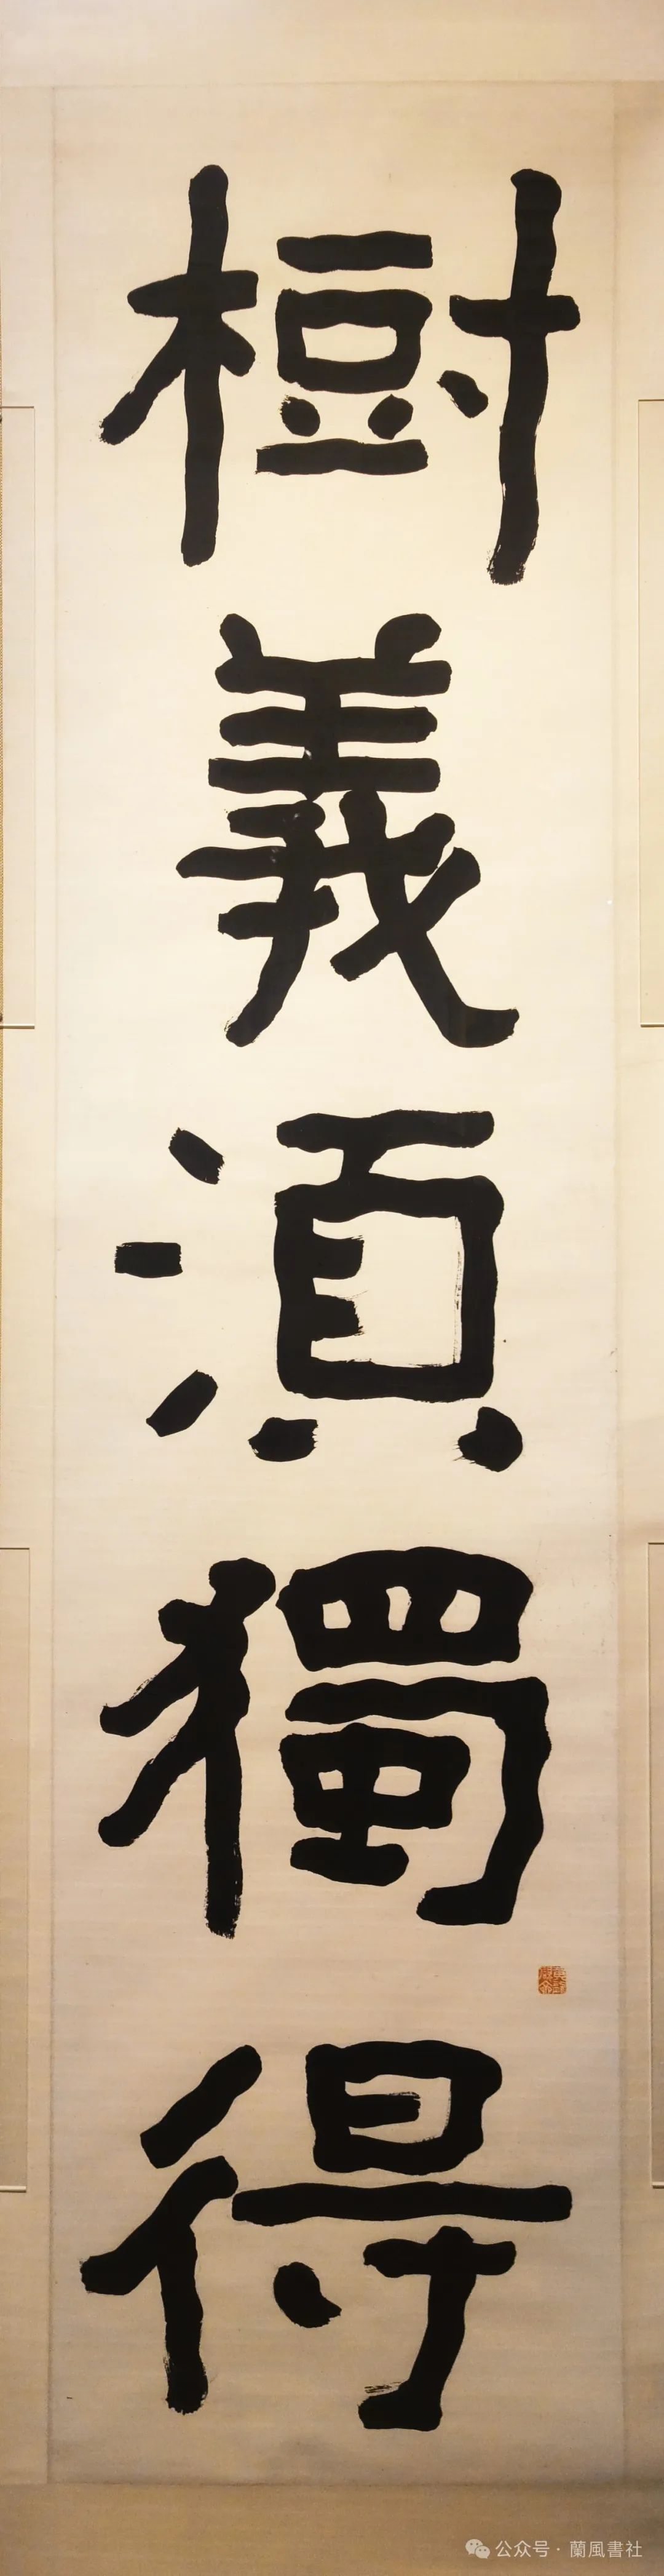 樹義須獨得
公众号 · 蘭風書社